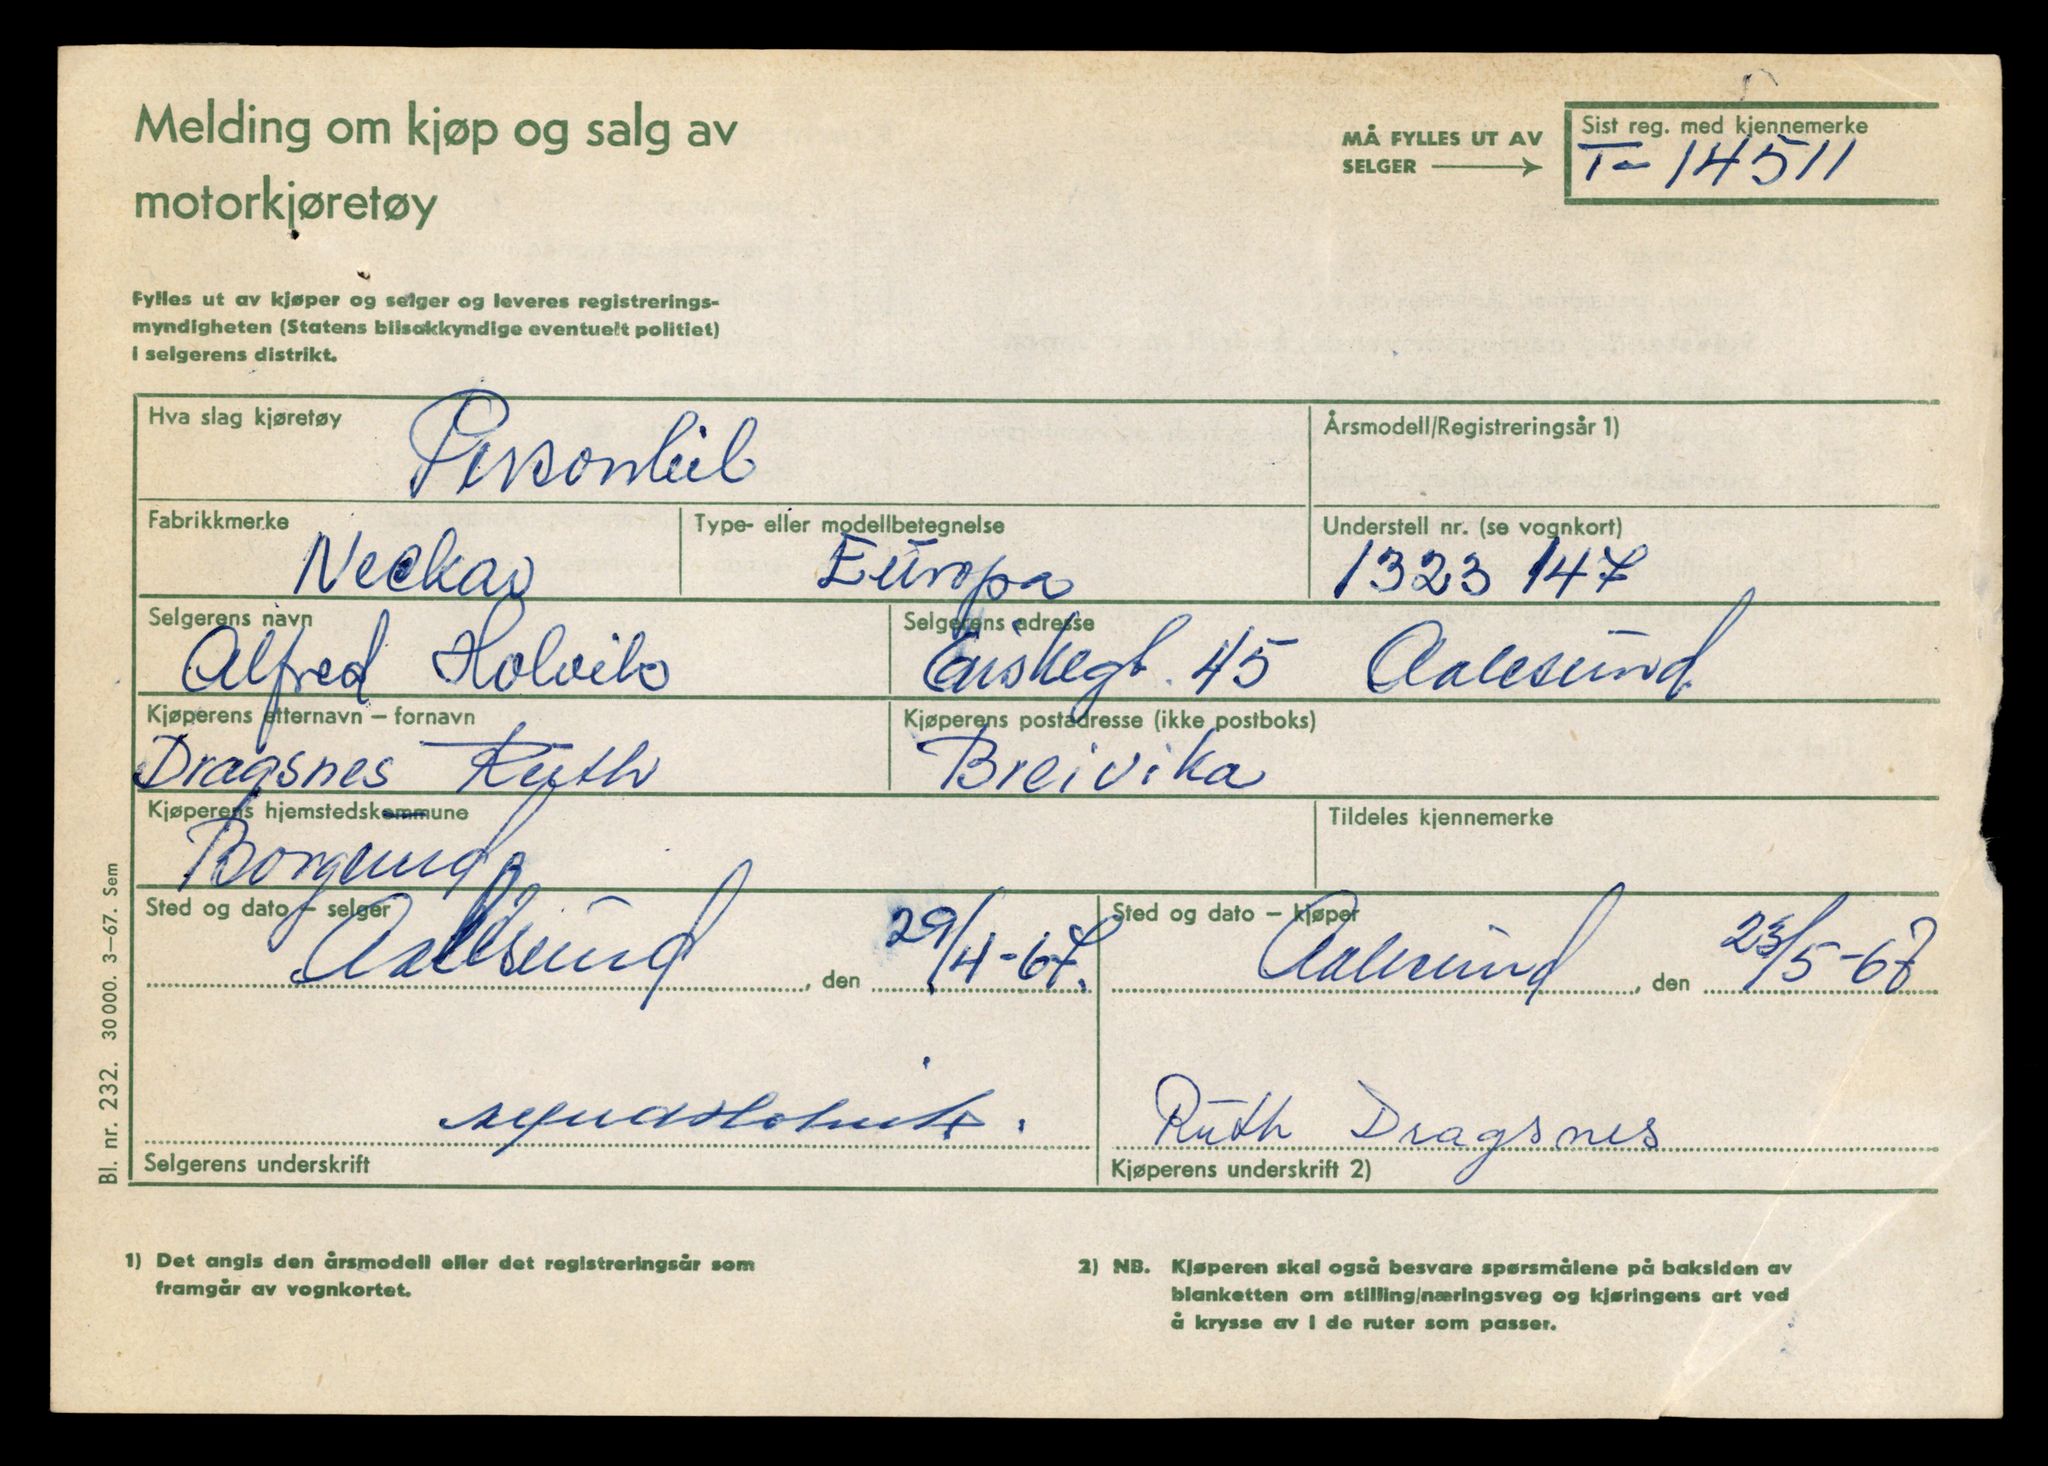 Melding om kjøp og salg av
motorkjøretøy
MÅ FYLLES UT AV
SELGER
Sist reg. med kjennemerke
T-14511
Fylles ut av kjøper og selger og leveres registrerings-
myndigheten (Statens bilsakkyndige eventuelt politiet)
i selgerens distrikt.
Hva slag kjøretøy
Personbil
Årsmodell/Registreringsår 1)
Fabrikkmerke
Neckar
Type- eller modellbetegnelse
Europa
Understell nr. (se vognkort)
1323 147
Selgerens navn
Alfred Holvik
Selgerens adresse
45 Aalesund
Kjøperens etternavn – fornavn
Dragsnes Ruth
Kjøperens postadresse (ikke postboks)
Breivika
Kjøperens hjemstedskommune
Borgund
Tildeles kjennemerke
Sted og dato – selger
Aalesund, den 29/4-67.
Sted og dato – kjøper
Aalesund, den 23/5-67
Selgerens underskrift
Ruth Dragsnes
Kjøperens underskrift 2)
Bl. nr. 232. 30 000. 3–67. Sem
1) Det angis den årsmodell eller det registreringsår som
framgår av vognkortet.
2) NB. Kjøperen skal også besvare spørsmålene på baksiden av
blanketten om stilling/næringsveg og kjøringens art ved
å krysse av i de ruter som passer.